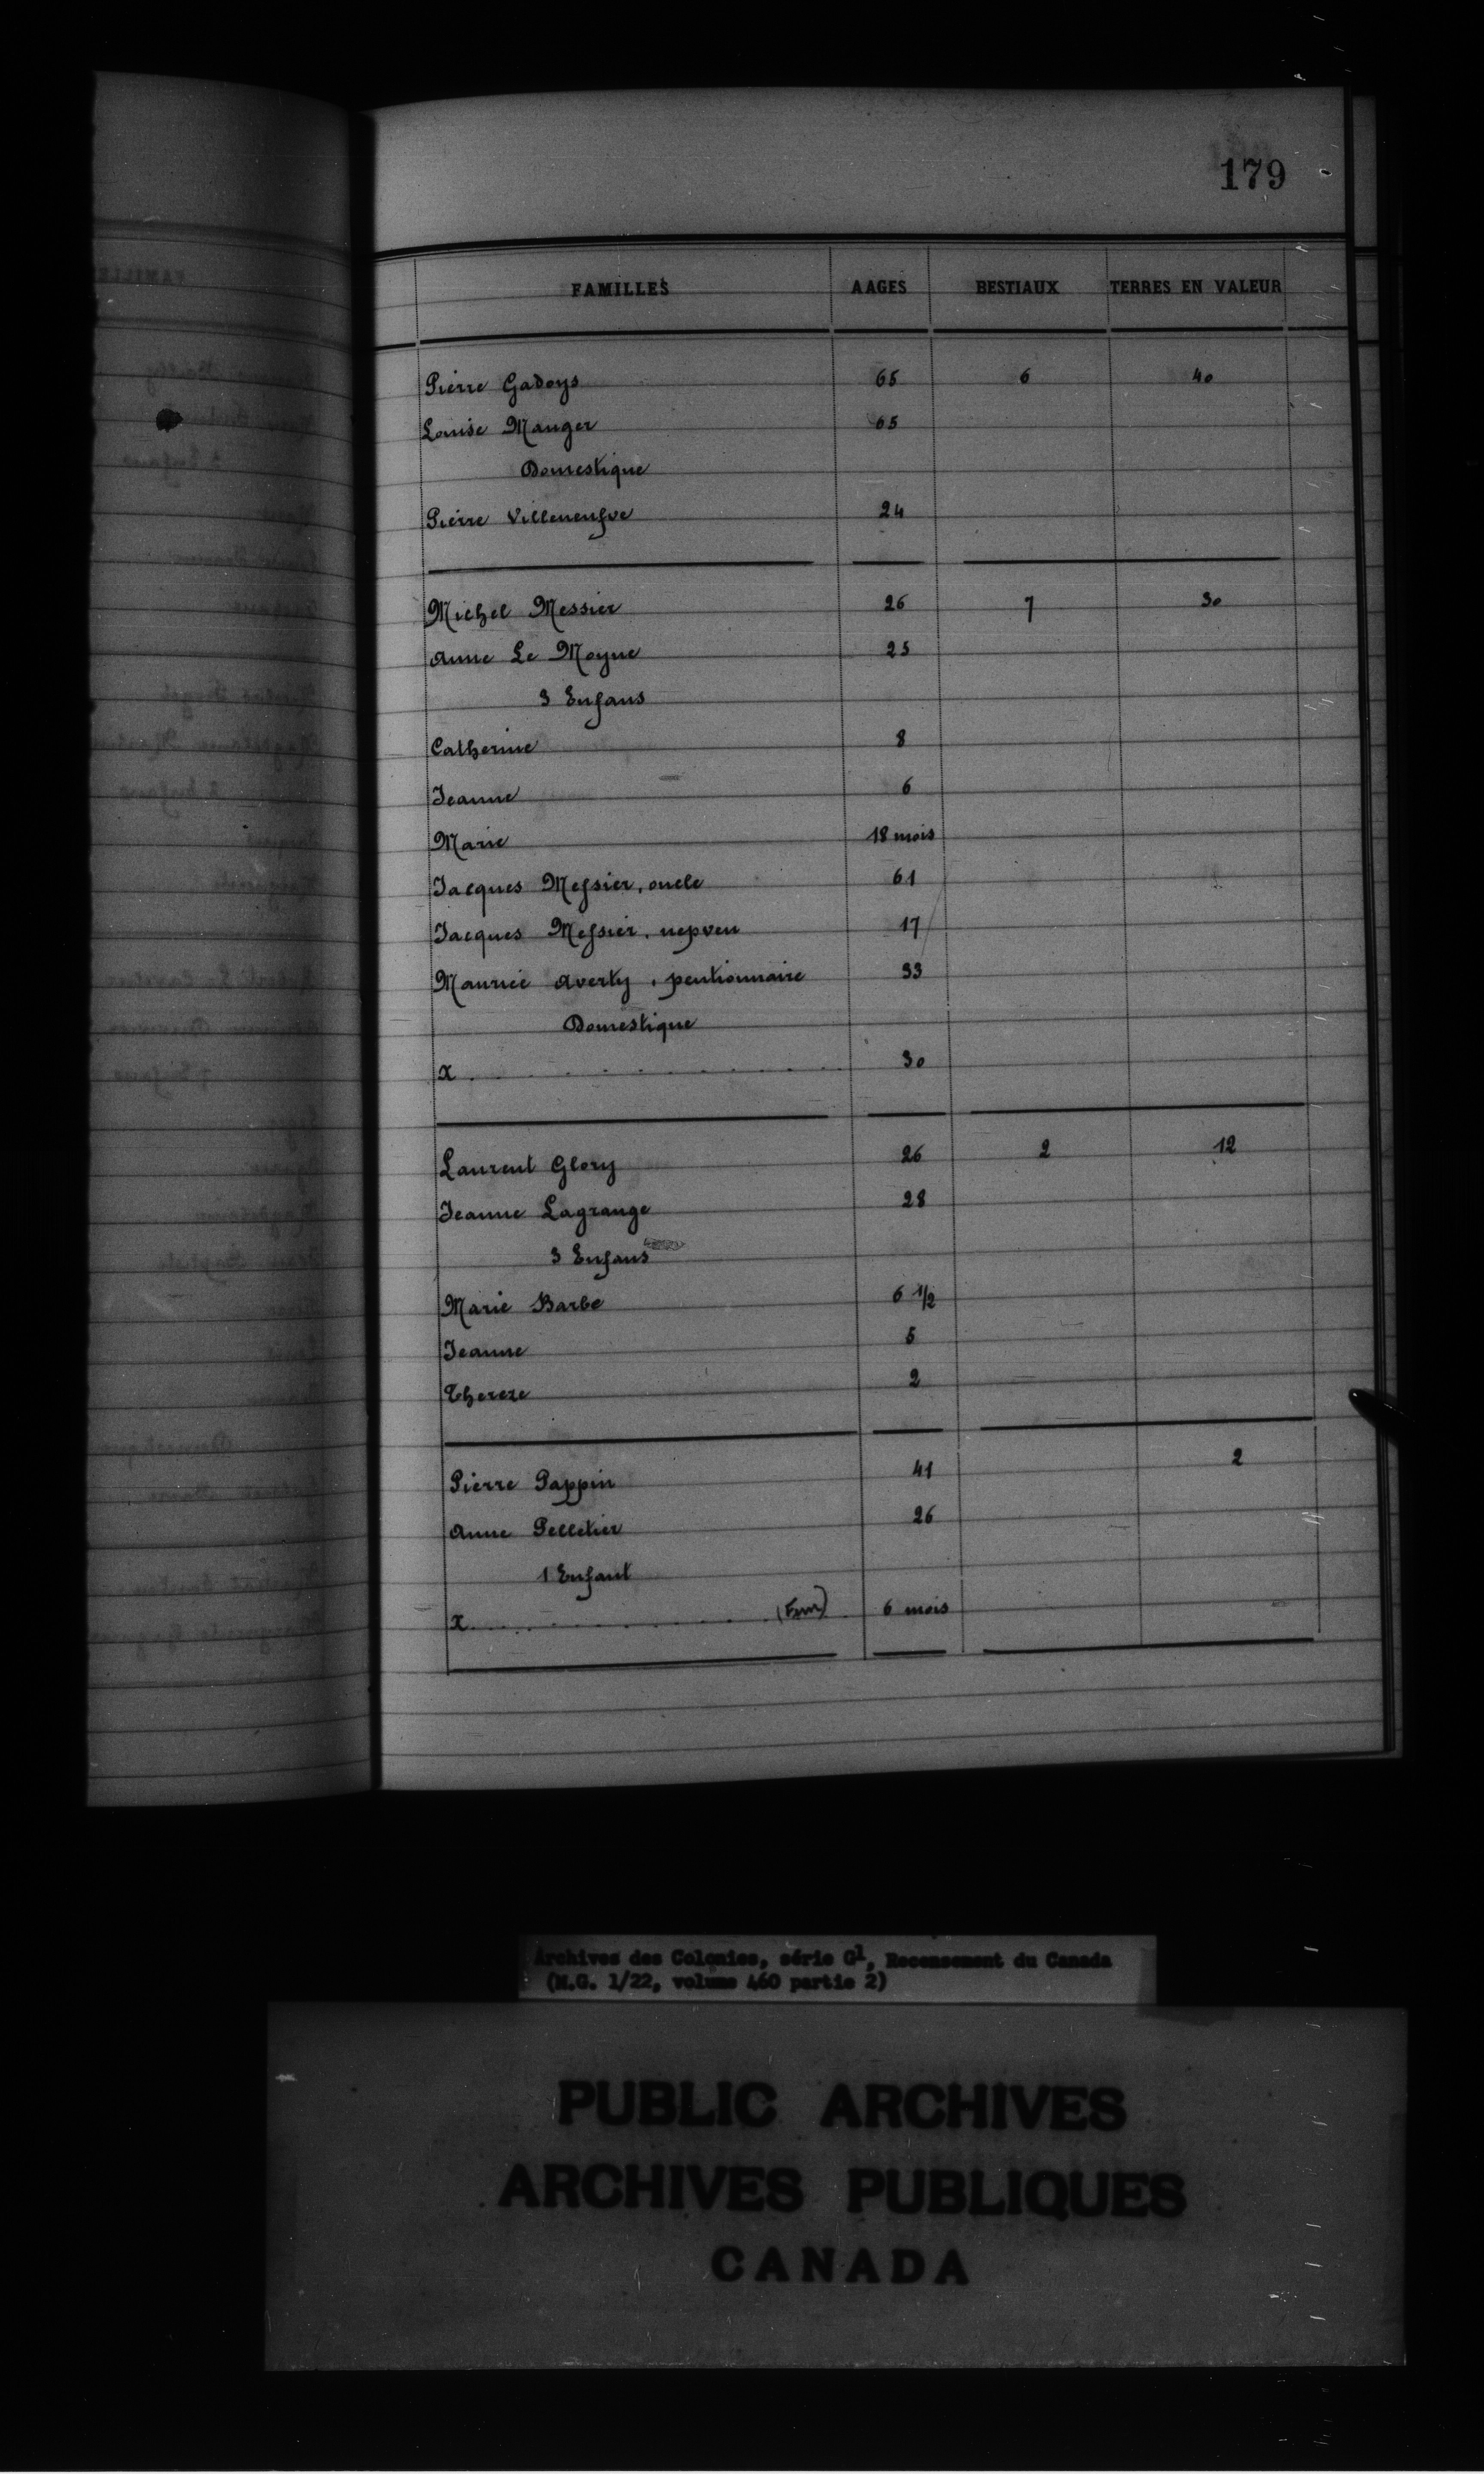 179
FAMILLES AAGES BESTIAUX TERRES EN VALEUR
Pierre Gadoys 65 6 40
Louise Mauger 65
Domestique
Pierre Villeneufve 24
Michel Messier 26 7 30
Anne Le Moyne 25
3 Enfans
Catherine 8
Jeanne 6
Marie 18 mois
Jacques Messier, oncle 61
Jacques Messier, nepveu 17
Maurice Averty, pentionnaire 33
Domestique
x . . . . . . . . . . 30
Laurent Glory 26 2 12
Jeanne Lagrange 28
3 Enfans
Marie Barbe 6 1/2
Jeanne 5
Thereze 2
Pierre Pappin 41 2
Anne Pelletier 26
1 Enfant
x . . . . . . . . . . 6 mois
Archives des Colonies, série G1, Recensement du Canada
(M.G. 1/22, volume 460 partie 2)
PUBLIC ARCHIVES
ARCHIVES PUBLIQUES
CANADA